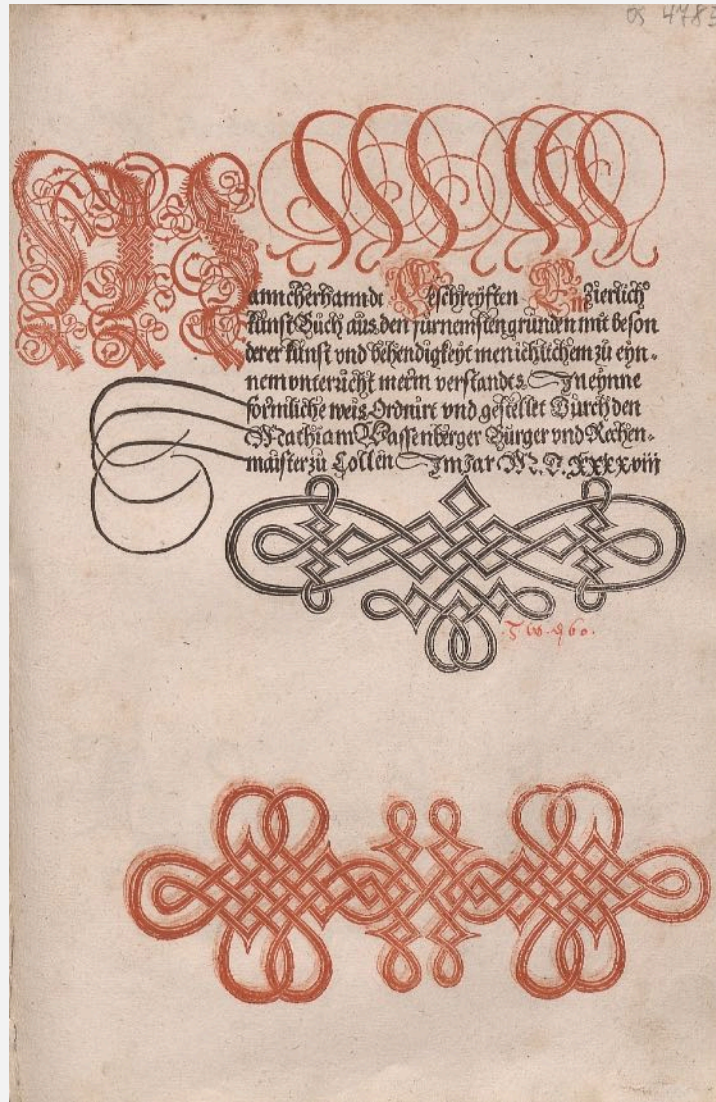 OS 4783
Manncherhanndt Geschreyften Ein Zierlich
kunst Buch aus den furnemsten grunden mit beson
derer kunst vnd behendigkeyt menichlichem zu eyn-
nem vnterricht merm verstandts Jn eynne
formliche weis Ordnirt vnd gestellet Durch den
Mathiam Wassenberger Burger vnd Rechen-
maister zu Collen Jm Jar M. D. XXXXviij